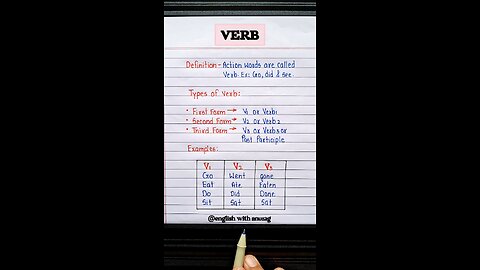 VERB
Definition - Action words are called
Verb. Ex: Go, did & see.
Types of verb:
• First Form → V1 or Verb1
• Second Form → V2 or Verb2
• Third Form → V3 or Verb3 or
Past Participle
Examples:
V1 V2 V3
Go Went gone
Eat Ate Eaten
Do Did Done
Sit Sat Sat
@english with anurag